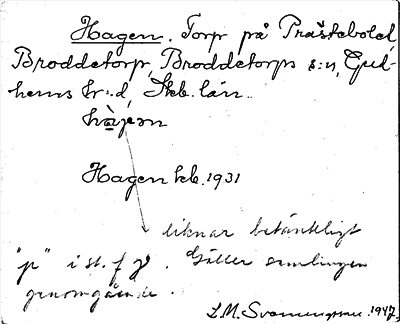 Hagen. Torp på Prästebolet,
Broddetorp, Broddetorps s:n, Gud-
hems hr:d, Skb. län.
Hagen kb. 1931
liknar betänkligt
"p" i st. f γ. Gäller samlingen
genomgående.
L.M. Svenungsson. 1947.